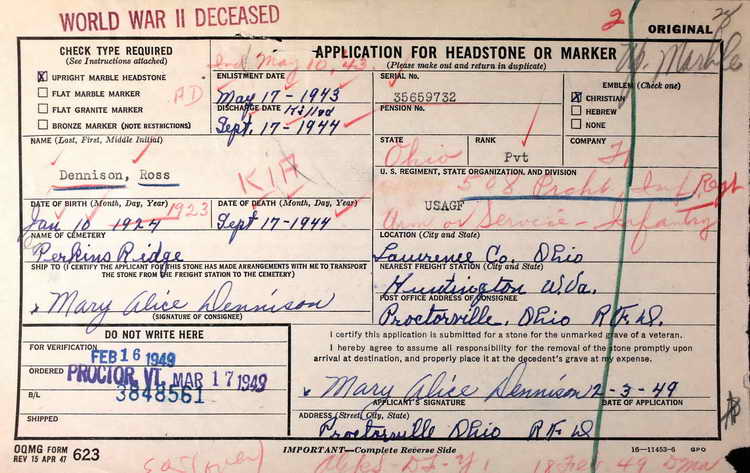 WORLD WAR II DECEASED
2
ORIGINAL
W. Marble
CHECK TYPE REQUIRED
(See Instructions attached)
X UPRIGHT MARBLE HEADSTONE
FLAT MARBLE MARKER
FLAT GRANITE MARKER
BRONZE MARKER (NOTE RESTRICTIONS)
AD
APPLICATION FOR HEADSTONE OR MARKER
(Please make out and return in duplicate)
ind May 10, 43
ENLISTMENT DATE
May 17-1943
DISCHARGE DATE Killed
Sept. 17-1944
SERIAL No.
35659732
PENSION No.
EMBLEM (Check one)
X CHRISTIAN
HEBREW
NONE
NAME (Last, First, Middle Initial)
Dennison, Ross
KIA
STATE
Ohio
RANK
Pvt
COMPANY
U. S. REGIMENT, STATE ORGANIZATION, AND DIVISION
508 Procht Inf Regt
USAGF
Arm or Service - Infantry
DATE OF BIRTH (Month, Day, Year)
Jan 10 1924 1923
DATE OF DEATH (Month, Day, Year)
Sept 17-1944
NAME OF CEMETERY
Perkins Ridge
LOCATION (City and State)
Lawrence Co. Ohio
SHIP TO (I CERTIFY THE APPLICANT FOR THIS STONE HAS MADE ARRANGEMENTS WITH ME TO TRANSPORT
THE STONE FROM THE FREIGHT STATION TO THE CEMETERY)
Mary Alice Dennison
(SIGNATURE OF CONSIGNEE)
NEAREST FREIGHT STATION (City and State)
Huntington W.Va.
POST OFFICE ADDRESS OF CONSIGNEE
Proctorville, Ohio R.F.D.
DO NOT WRITE HERE
FOR VERIFICATION
FEB 16 1949
ORDERED
PROCTOR, VT. MAR 17 1949
B/L
3848561
SHIPPED
I certify this application is submitted for a stone for the unmarked grave of a veteran.
I hereby agree to assume all responsibility for the removal of the stone promptly upon
arrival at destination, and properly place it at the decedent's grave at my expense.
Mary Alice Dennison 2-3-49
APPLICANT'S SIGNATURE
DATE OF APPLICATION
ADDRESS (Street, City, State)
Proctorville Ohio R.F.D.
OQMG FORM
REV 15 APR 47 623
IMPORTANT—Complete Reverse Side
16—11453-6 GPO